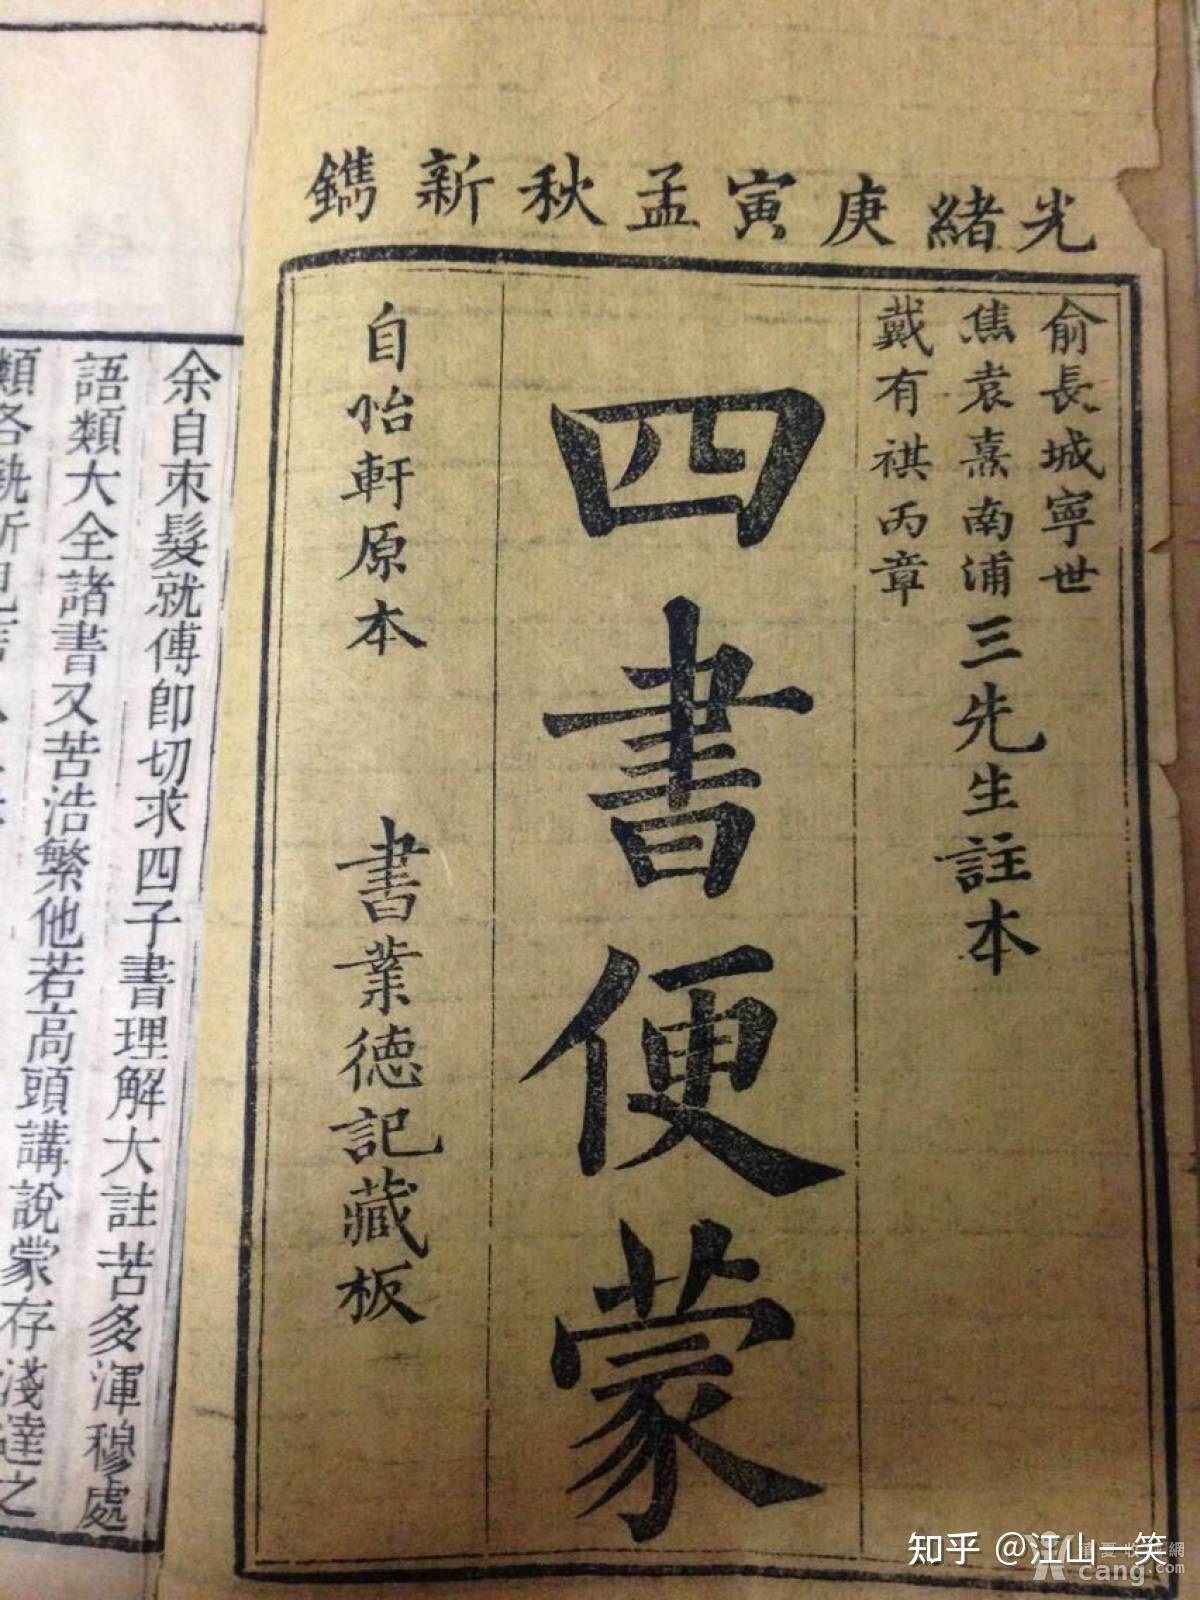 光緒庚寅孟秋新鐫
俞長城寧世
焦袁熹南浦
戴有祺丙章
三先生註本
四書便蒙
自怡軒原本
書業德記藏板
余自束髮就傅即切求四子書理解大註苦多渾穆處
語類大全諸書又苦浩繁他若高頭講說蒙存淺達之
類各執所見
知乎 @江山一笑
華夏收藏網
cang.com